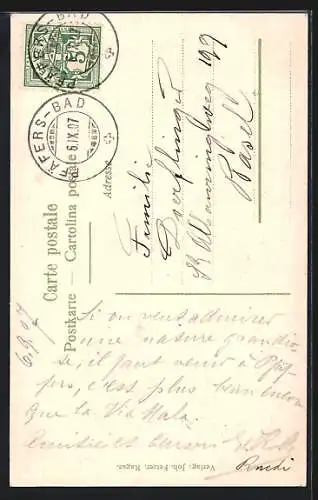 PFÄFERS-BAD
5
PFÄFERS-BAD
6.IX.07
Carte postale
Postkarte — Cartolina postale
Adresse
Familie
Doerflinger
St. Albanringweg 199
Basel
6.9.07
Si on veut admirer
une nature grandio-
se, il faut venir à Pfäf-
fers, c'est plus beau encore
que la Via Mala.
Amitiés et baisers
Ruedi
Verlag: Joh. Fetzer, Ragaz.